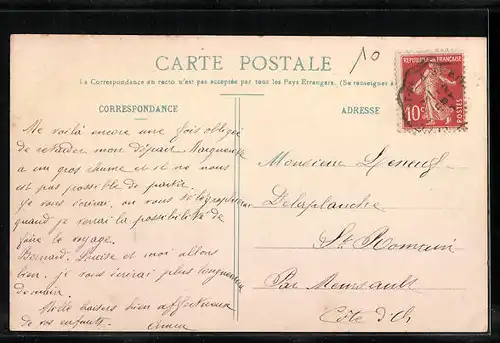 10
CARTE POSTALE
La Correspondance au recto n'est pas acceptée par tous les Pays Etrangers. (Se renseigner à
CORRESPONDANCE
ADRESSE
REPUBLIQUE FRANÇAISE
10c
POSTES
Me voilà encore une fois obligée
de retarder mon départ Marguerite
a un gros rhume et il ne nous
est pas possible de partir.
Je vous écrirai, ou vous télégraphierai
quand je verrai la possibilité de
faire le voyage.
Bernard, Louise et moi allons
bien. je vous écrirai plus longuement
demain
baisers bien affectueux
de vos enfants.
Monsieur
Delaplanche
St Romain
Par Meursault
Côte d'Or